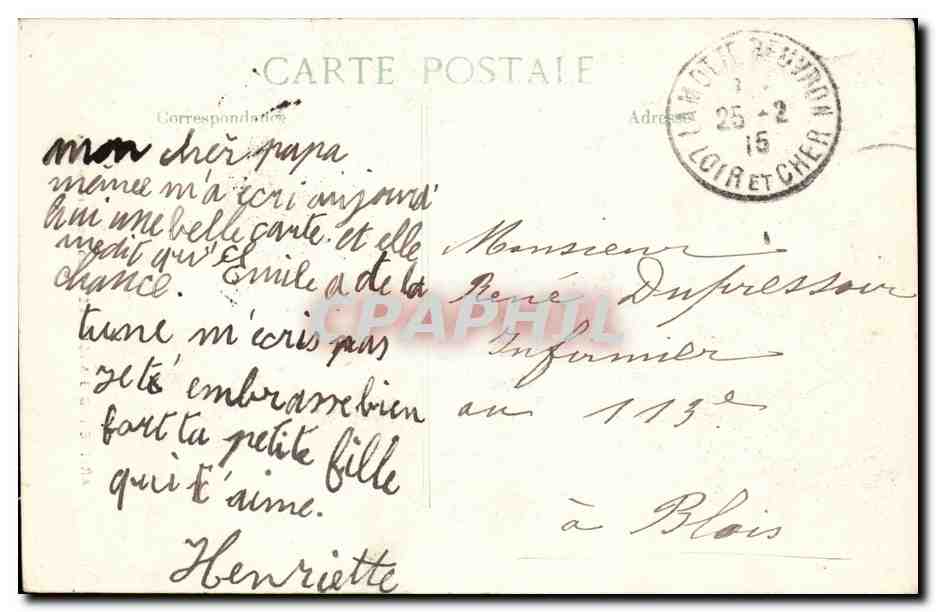 CARTE POSTALE
Correspondance
Adresse
LAMOTTE BEUVRON
25 - 2
15
LOIR ET CHER
mon cher papa
mémée m'a écri aujourd'
hui une belle carte. et elle
me dit qu'
Emile a de la
chance.
tu ne m'écris pas
je te embrasse bien
fort ta petite fille
qui t'aime.
Henriette
Monsieur
René Dufressour
Infirmier
au 113e
à Blois
CPAPHIL